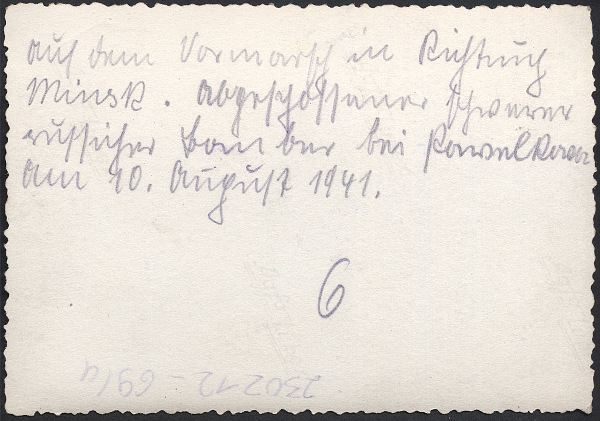 auf dem Vormarsch in Richtung
Minsk. Abgeschossener schwerer
russischer Bomber bei
am 10. August 1941.
6
230212-69/a